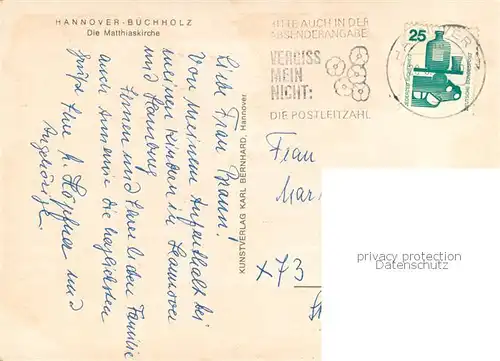 HANNOVER-BUCHHOLZ
Die Matthiaskirche
BITTE AUCH IN DER
ABSENDERANGABE
VERGISS
MEIN
NICHT:
DIE POSTLEITZAHL
HANNOVER
25
Liebe Frau Braun!
Von meinem Aufenthalt bei
meinen Kindern in Hannover
und Hamburg
Ihnen und Ihrer lieben Familie
auch Annemie die herzlichsten
Grüße Ihre
und
Angehörige.
KUNSTVERLAG KARL BERNHARD, Hannover
Frau
Mar
x 73
St
privacy protection
Datenschutz